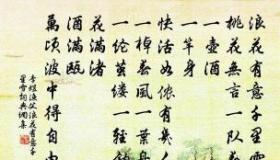 浪花有意千里雪
桃花無言一隊春
一壺酒
一竿身
快活如儂有幾人
一棹春風一葉舟
一綸繭縷一輕鉤
花滿渚
酒滿甌
萬頃波中得自由
李煜漁父浪花有意千里